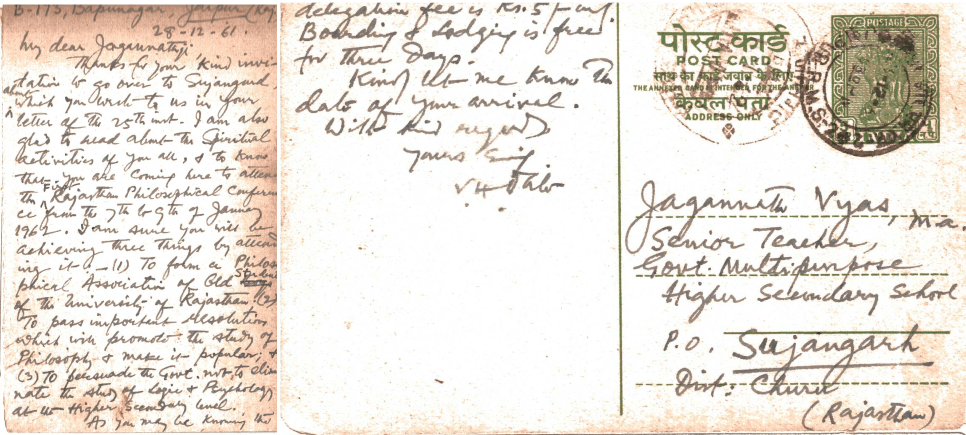 B-173, Bapunagar, Jaipur (Raj)
28-12-61.
My dear Jagannathji,
Thanks for your kind invi-
tation to go over to Sujangarh,
about which you write to us in your
letter of the 25th inst. I am also
glad to read about the Spiritual
activities of you all, & to know
that you are coming here to attend
the First Rajasthan Philosophical Conferen-
ce from the 7th to 9th of January
1962. I am sure you will be
achieving three things by attend-
ing it :- (1) To form a Philoso-
phical Association of Old Students
of the University of Rajasthan (2)
To pass important resolutions
which will promote the study of
Philosophy & make it popular, &
(3) To persuade the Govt. not to elimi-
nate the study of Logic & Psychology
at the Higher Secondary level.
As you may be knowing the
delegation fee is Rs. 5/- only.
Boarding & Lodging is free
for three days.
Kindly let me know the
date of your arrival.
With kind regards
Yours Sinly
पोस्ट कार्ड
POST CARD
साथ का कार्ड जवाब के लिए
THE ANNEXED CARD IS INTENDED FOR THE ANSWER
केवल पता
ADDRESS ONLY
POSTAGE
Jagannath Vyas, M.A.
Senior Teacher,
Govt. Multipurpose
Higher Secondary School
P.O. Sujangarh
Dist: Churu
(Rajasthan)